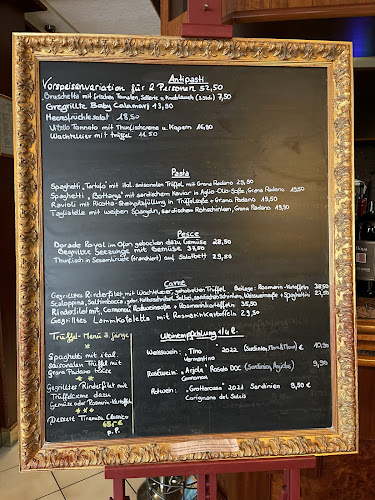 Antipasti
Vorspeisenvariation für 2 Personen 52,50
Bruschette mit frischen Tomaten, Sellerie u. Knoblauch (2 Stck) 7,50
Gegrillte Baby Calamari 19,80
Meeresfrüchtesalat 18,50
Vitello Tonnato mit Thunfischcreme u. Kapern 16,90
Wachteleier mit Trüffel 11,50
Pasta
Spaghetti "Tartufo" mit ital. saisonalen Trüffel, mit Grana Padano 29,80
Spaghetti "Bottarga" mit sardischem Kaviar in Aglio-Olio-Soße, Grana Padano 19,50
Ravioli mit Ricotta-Steinpilzfüllung in Trüffelsoße, Grana Padano 19,50
Tagliatelle mit weißen Spargeln, sardischen Rohschinken, Grana Padano 19,50
Pesce
Dorade Royal im Ofen gebacken dazu Gemüse 28,50
Gegrillte Seezunge mit Gemüse 37,80
Thunfisch in Sesamkruste (tranchiert) auf Salatbett 29,80
Carne
Gegrilltes Rinderfilet mit Wachteleier, gehobelten Trüffel Beilage: Rosmarin-Kartoffeln 38,50
Scaloppina Saltimbocca: Salbei, sardischen Schinken, Weissweinsoße + Spaghettini 27,50
Rinderfilet mit Cannonau Rotweinsoße + Rosmarinkartoffeln 35,50
Gegrilltes Lammkotelette mit Rosmarinkartoffeln 29,50
Trüffel-Menü 3 gänge
Spaghetti mit ital.
saisonalen Trüffel mit
Grana Padano
Gegrilltes Rinderfilet mit
Trüffelcreme dazu
Gemüse oder Rosmarin-Kartoffeln
Dessert Tiramisu Classico
65,- €
p. P.
Weinempfehlung
Weisswein: "Tino" 2022 (Sardinien) € 10,90
Vermentino
Rotwein: "Anjola" Rosato DOC (Sardinien) 9,90
Cannonau
Rotwein: "Grotta Rossa" 2021 Sardinien 9,50 €
Carignano del Sulcis